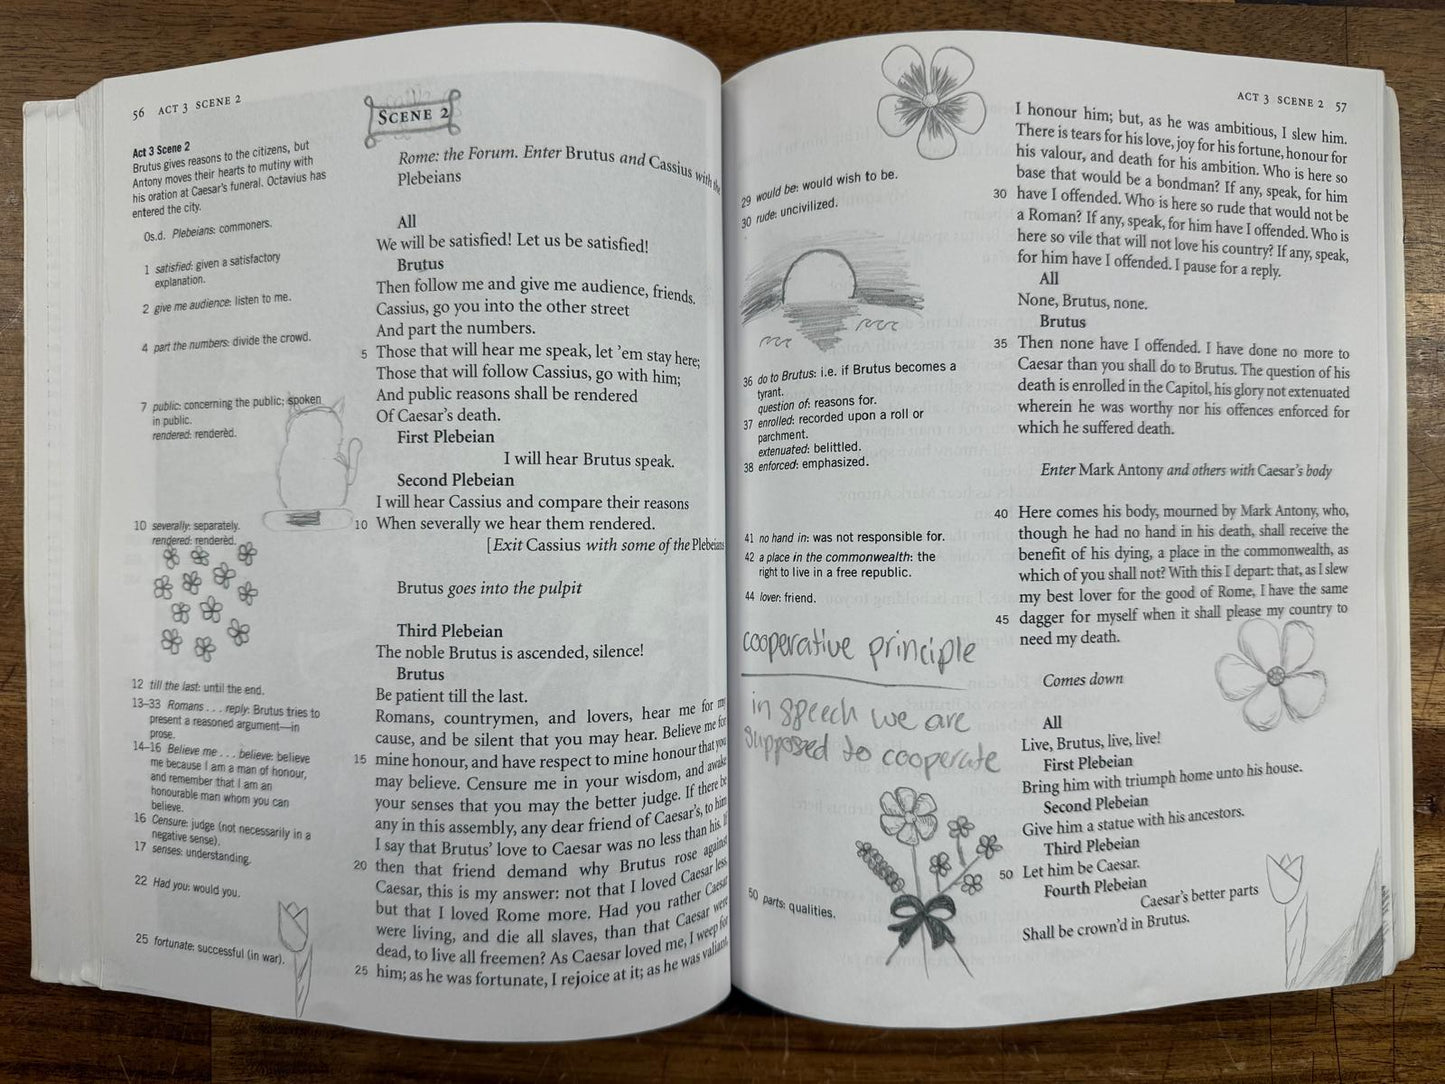 56 ACT 3 SCENE 2
Act 3 Scene 2
Brutus gives reasons to the citizens, but
Antony moves their hearts to mutiny with
his oration at Caesar's funeral. Octavius has
entered the city.
0s.d. Plebeians: commoners.
1 satisfied: given a satisfactory
explanation.
2 give me audience: listen to me.
4 part the numbers: divide the crowd.
7 public: concerning the public; spoken
in public.
rendered: renderèd.
10 severally: separately.
rendered: renderèd.
12 till the last: until the end.
13–33 Romans . . . reply: Brutus tries to
present a reasoned argument—in
prose.
14–16 Believe me . . . believe: believe
me because I am a man of honour,
and remember that I am an
honourable man whom you can
believe.
16 Censure: judge (not necessarily in a
negative sense).
17 senses: understanding.
22 Had you: would you.
25 fortunate: successful (in war).
SCENE 2
Rome: the Forum. Enter Brutus and Cassius with the
Plebeians
All
We will be satisfied! Let us be satisfied!
Brutus
Then follow me and give me audience, friends.
Cassius, go you into the other street
And part the numbers.
5 Those that will hear me speak, let 'em stay here;
Those that will follow Cassius, go with him;
And public reasons shall be rendered
Of Caesar's death.
First Plebeian
I will hear Brutus speak.
Second Plebeian
I will hear Cassius and compare their reasons
10 When severally we hear them rendered.
[Exit Cassius with some of the Plebeians
Brutus goes into the pulpit
Third Plebeian
The noble Brutus is ascended, silence!
Brutus
Be patient till the last.
Romans, countrymen, and lovers, hear me for my
cause, and be silent that you may hear. Believe me for
15 mine honour, and have respect to mine honour that you
may believe. Censure me in your wisdom, and awake
your senses that you may the better judge. If there be
any in this assembly, any dear friend of Caesar's, to him
I say that Brutus' love to Caesar was no less than his. If
20 then that friend demand why Brutus rose against
Caesar, this is my answer: not that I loved Caesar less,
but that I loved Rome more. Had you rather Caesar
were living, and die all slaves, than that Caesar were
dead, to live all freemen? As Caesar loved me, I weep for
25 him; as he was fortunate, I rejoice at it; as he was valiant,
ACT 3 SCENE 2 57
29 would be: would wish to be.
30 rude: uncivilized.
36 do to Brutus: i.e. if Brutus becomes a
tyrant.
question of: reasons for.
37 enrolled: recorded upon a roll or
parchment.
extenuated: belittled.
38 enforced: emphasized.
41 no hand in: was not responsible for.
42 a place in the commonwealth: the
right to live in a free republic.
44 lover: friend.
cooperative principle
in speech we are
supposed to cooperate
50 parts: qualities.
I honour him; but, as he was ambitious, I slew him.
There is tears for his love, joy for his fortune, honour for
his valour, and death for his ambition. Who is here so
base that would be a bondman? If any, speak, for him
30 have I offended. Who is here so rude that would not be
a Roman? If any, speak, for him have I offended. Who is
here so vile that will not love his country? If any, speak,
for him have I offended. I pause for a reply.
All
None, Brutus, none.
Brutus
35 Then none have I offended. I have done no more to
Caesar than you shall do to Brutus. The question of his
death is enrolled in the Capitol, his glory not extenuated
wherein he was worthy nor his offences enforced for
which he suffered death.
Enter Mark Antony and others with Caesar's body
40 Here comes his body, mourned by Mark Antony, who,
though he had no hand in his death, shall receive the
benefit of his dying, a place in the commonwealth, as
which of you shall not? With this I depart: that, as I slew
my best lover for the good of Rome, I have the same
45 dagger for myself when it shall please my country to
need my death.
Comes down
All
Live, Brutus, live, live!
First Plebeian
Bring him with triumph home unto his house.
Second Plebeian
Give him a statue with his ancestors.
Third Plebeian
50 Let him be Caesar.
Fourth Plebeian
Caesar's better parts
Shall be crown'd in Brutus.